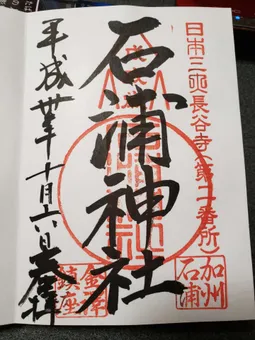 日本三所長谷寺(第二番所)
加州
石浦
石浦神社
平成卅年十月六日奉拝
金澤
鎮座